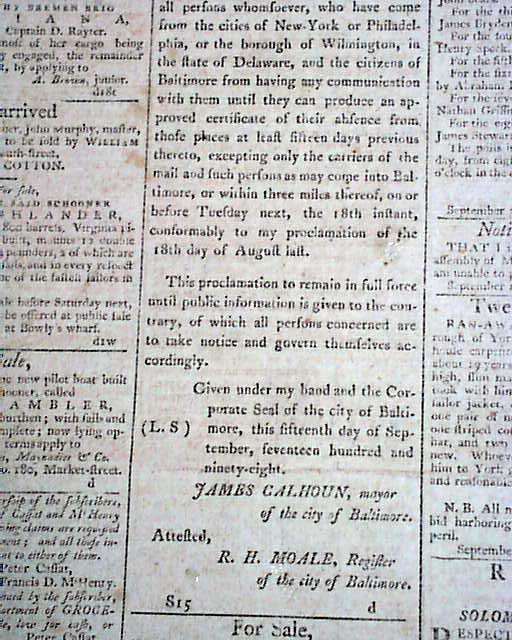 BY BREMEN BRIG
I A N A,
Captain D. Rayter.
most of her cargo being
y engaged, the remainder
r, by applying to
A. Brown, junior.
d18t
arrived
ner, John Murphy, master,
to be sold by WILLIAM
outh-street,
COTTON.
For sale,
SAID SCHOONER
H L A N D E R,
800 barrels, Virginia
built, mounts 12 double
pounders, 2 of which are
sails, and in every respect
ne of the fastest sailors in
ale before Saturday next,
be offered at public sale
at Bowly's wharf.
d1w
Sale,
he new pilot boat built
hooner, called
A M B L E R,
burthen; with sails and
mplete; now lying op-
terms apply to
& Co.
o. 180, Market-street.
d
ership of the subscribers,
of Cassat and McHenry
ing claims are requested
ment; and all those in-
nt to either of them.
Peter Cassat,
Francis D. McHenry.
nued by the subscriber,
sortment of GROCE-
le, low for cash, or
Peter Cassat.
all persons whomsoever, who have come
from the cities of New-York or Philadel-
phia, or the borough of Wilmington, in
the state of Delaware, and the citizens of
Baltimore from having any communication
with them until they can produce an ap-
proved certificate of their absence from
those places at least fifteen days previous
thereto, excepting only the carriers of the
mail and such persons as may come into Bal-
timore, or within three miles thereof, on or
before Tuesday next, the 18th instant,
conformably to my proclamation of the
18th day of August last.
This proclamation to remain in full force
until public information is given to the con-
trary, of which all persons concerned are
to take notice and govern themselves ac-
cordingly.
Given under my hand and the Cor-
porate Seal of the city of Balti-
(L. S) more, this fifteenth day of Sep-
tember, seventeen hundred and
ninety-eight.
JAMES CALHOUN, mayor
of the city of Baltimore.
Attested,
R. H. MOALE, Register
of the city of Baltimore.
S15 d
For Sale,
For th
James Bryden
For the fou
Plenty speck.
For the fifth
For the fixt
by Abraham
For the
Nathan Griffin
For the eig
James Stewar
The
day, from eigh
o'clock in the
September
Noti
THAT I
assembly of M
am unable to p
September
Twe
RAN-AW
rough of York
house carpente
about 19 years
high, slim ma
took with him
sailor jacket,
one pair of
one striped co
hat, and two
new. Whoev
him to York
and reasonabl
N. B. All
bid harboring
peril.
Septembe
R
SOLOM
RESPEC